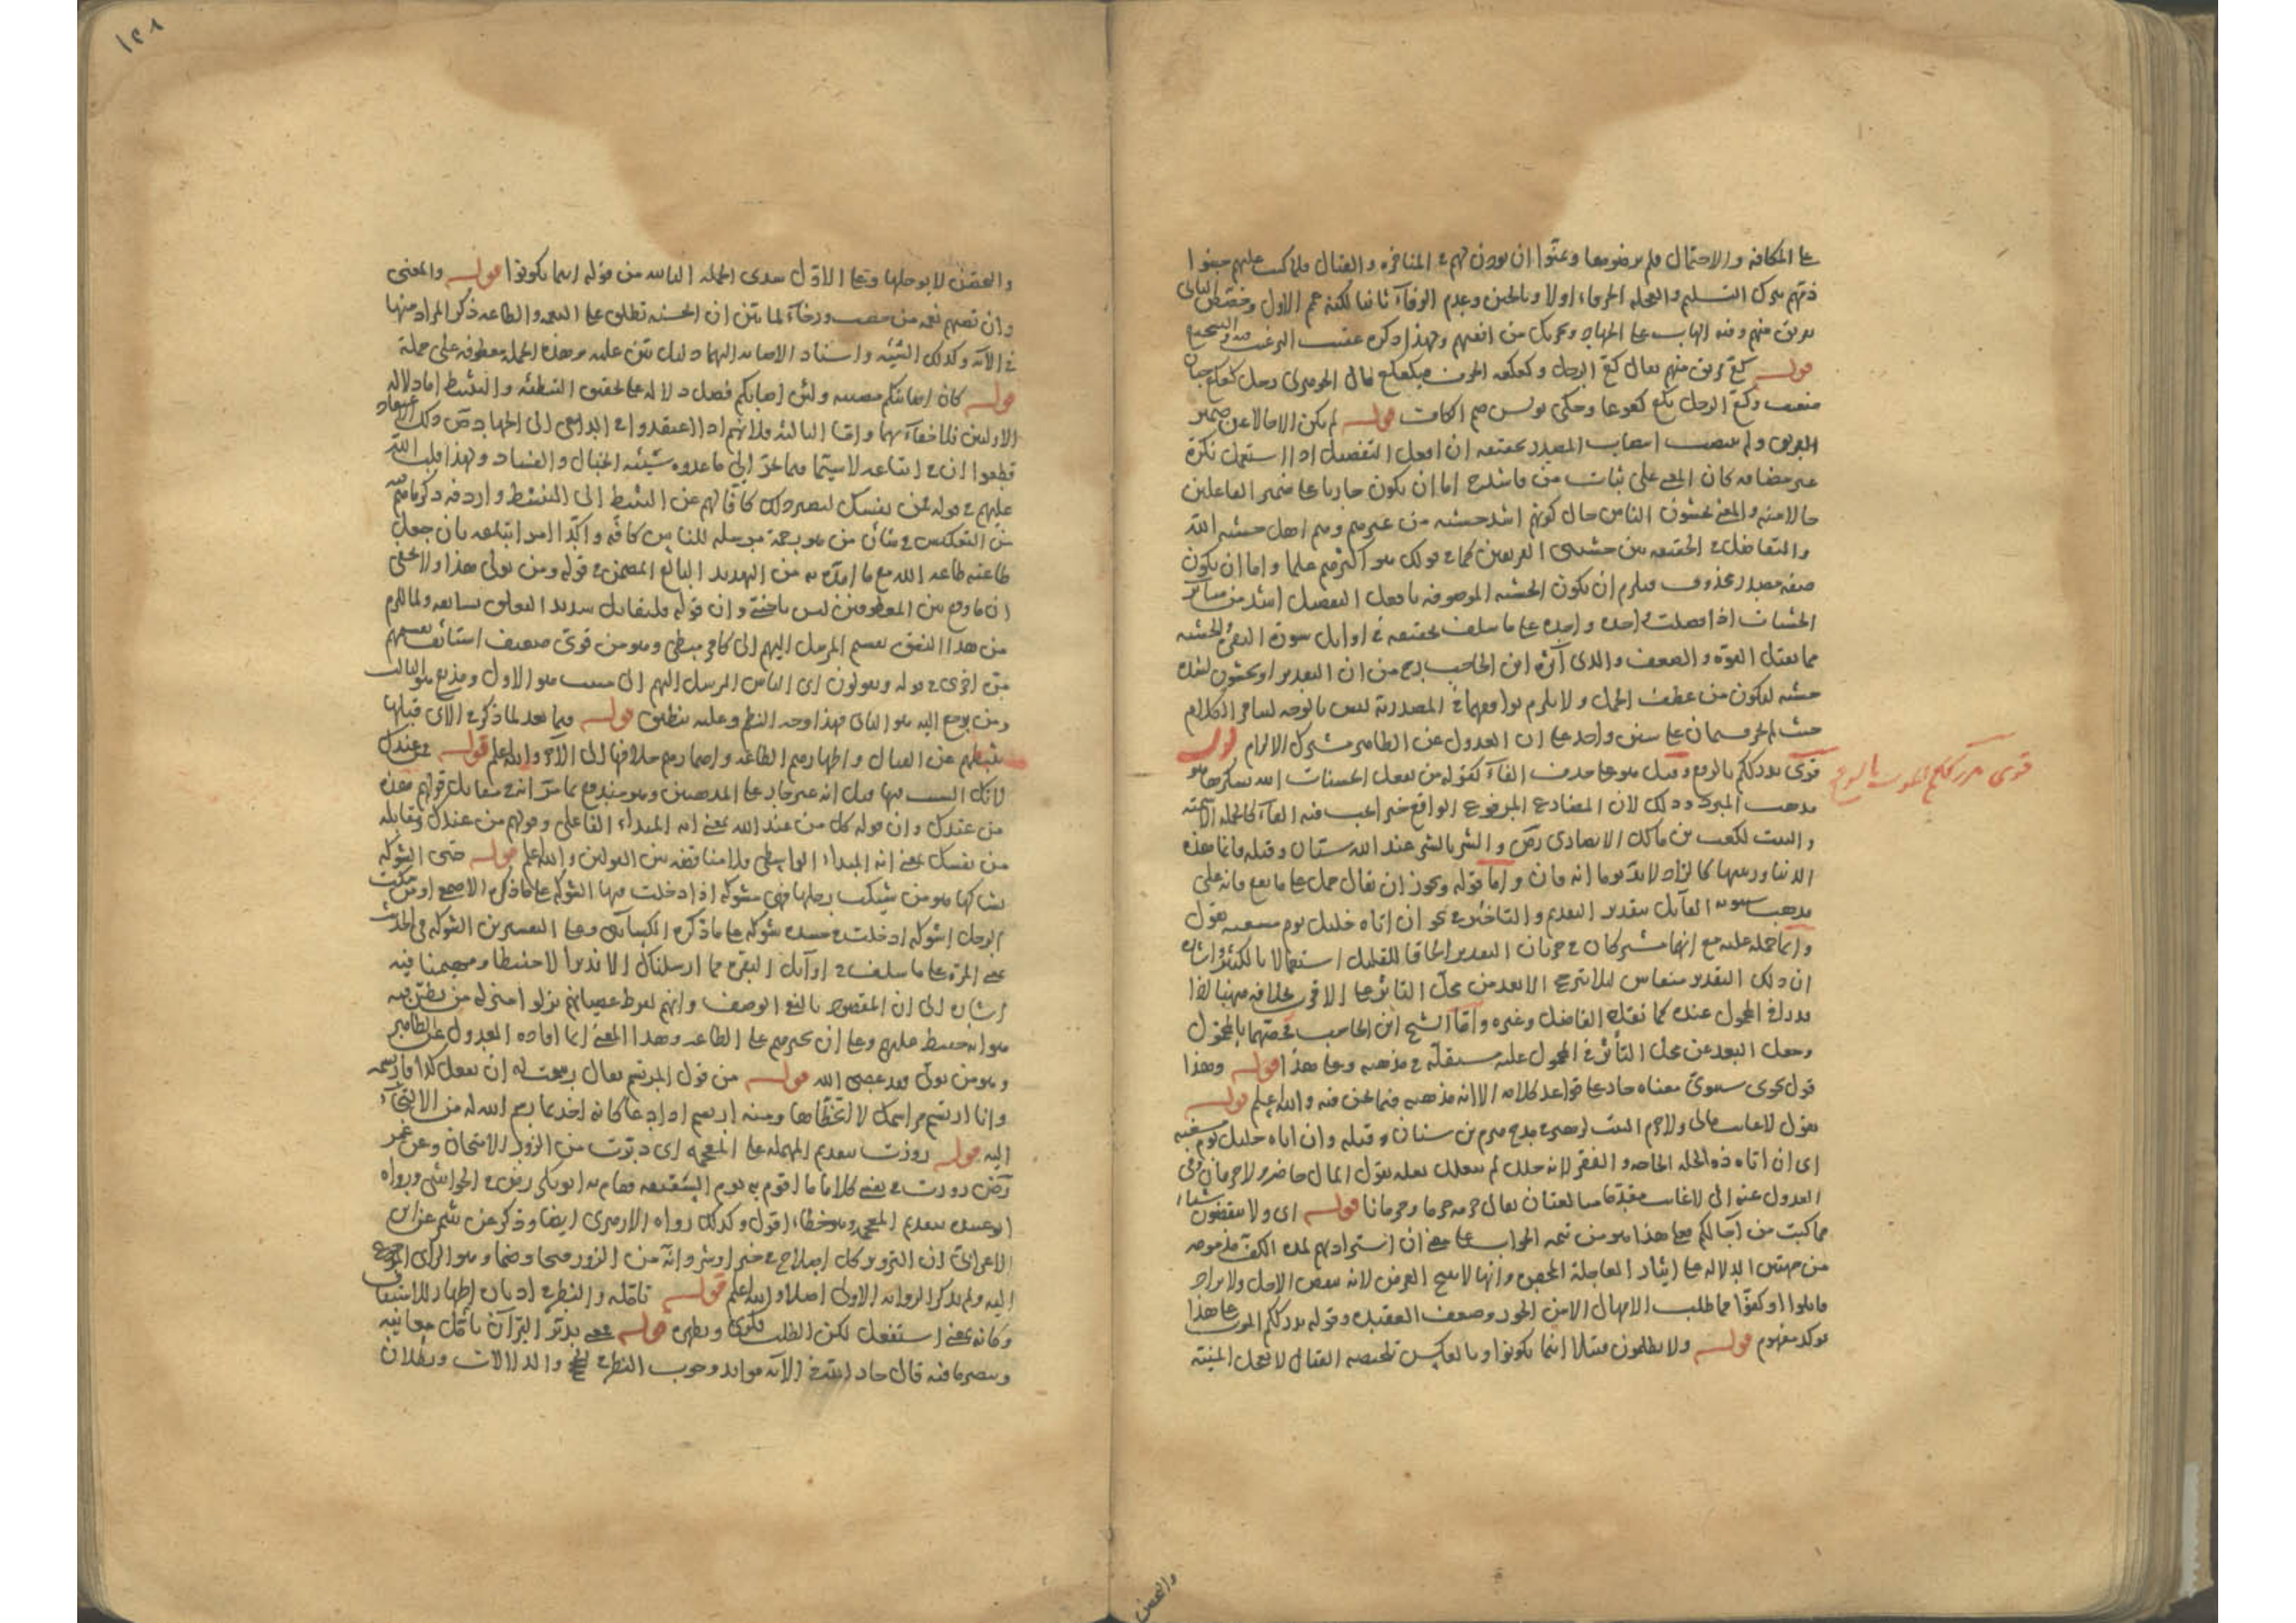 على المكافة والاحتمال فلم يرضوا بها وتمنوا ان يؤذن لهم في المناجزة والقتال فلما كتب عليهم جبنوا
ذمهم بترك التسليم والعجلة الحرماء اولا وبالجبن وعدم الوفاء ثانيا لكنه عم الاول وخصص الثاني
بفريق منهم وفيه الهاب على الجهاد وتحريك من انفسهم ولهذا ذكره عقيب الترغيب فيه والتشجيع
قوله كع فريق منهم يقال كع الرجل وكعكعه الخوف فتكعكع قال الجوهري رجل كعكع جبان
ضعيف وكع الرجل يكع كعوعا وحكى يونس ضم الكاف قوله لم يكن الا حالا عن ضمير
الفريق ولم ينتصب انتصاب المصدر تحقيقه ان افعل التفضيل اذا استعمل نكرة
غير مضافة كان المعنى على ثبات من فاشد خ اما ان يكون جاريا على ضمير الفاعلين
حالا منه والمعنى يخشون الناس حال كونهم اشد خشية من غيرهم وهم اهل خشية الله
والتفاضل في الحقيقة بين خشيتي الفريقين كما في قولك هو اكثرهم علما واما ان يكون
صفة مصدر محذوف فيلزم ان يكون الخشية الموصوفة بافعل التفضيل اشد من سائر
الخشيات اذا فصلت واحدة واحدة على ما سلف تحقيقه في اوايل سورة البقرة والخشية
مما يقبل القوة والضعف والذي آثره ابن الحاجب رح من ان التقدير او يخشون اشد
خشية ليكون من عطف الجمل ولا يلزم توافقهما في المصدرية ليس بالوجه لسائر الكلام
حيث هم حرسان على سنن واحد على ان العدول عن الظاهر مشترك الالزام قوله
قرئ يدرككم بالرفع وقيل هو على حذف الفاء كقوله من يفعل الحسنات الله يشكرها هو
قرئ يدرككم الموت بالرفع
مذهب المبرد وذلك لان المضارع المرفوع الواقع خبرا عب فيه الفاء كالجملة الاسمية
والبيت لكعب بن مالك الانصاري رض والشر بالشر عند الله سيان وقبله فانما هذه
الدنيا وزينتها كالزاد لا بد يوما انه فان واما قوله ويجوز ان يقال حمل على ما يقع فانه على
مذهب سيبويه القائل بتقدير التقديم والتاخير في نحو ان اتاه خليل يوم مسغبة يقول
وانما حمله عليه مع انهما مشتركان في جريان التقدير الحاقا للقليل استعمالا بالكثير واشارة
ان ذلك التقدير منقاس لئلا يترجح الابعد من محل التاثر على الاقرب بخلافه ههنا لذا
يدرأ في المحول عنده كما نقله الفاضل وغيره واما الشيخ ابن الحاجب فخصهما بالمحول
وجعل البعد عن محل التأثر في المحول عليه مستقلة في مذهبه وعلى هذا قوله وهذا
قول نحوي سيبوي معناه جار على قواعد كلامه الا انه مذهبه فيما نحن فيه والله اعلم قوله
يقول لا غائب مالي ولا حرم البيت لزهير يمدح هرم بن سنان وقبله وان اتاه خليل يوم مسغبة
اي ان اتاه ذو الخلة الحاجة والفقر لانه خلل لم يتعلل بعلة يقول المال حاضر ولا حرمان وفي
العدول عنه الى لا غائب مقدما مبالغتان يقال حرمه حرما وحرمانا قوله اي ولا ينقصون شيئا
مما كتب من آجالكم فعلى هذا هو من تتمة الجواب على معنى ان استزادتهم لمدة الكف مذمومة
من جهتين الدلالة على ايثار العاجلة المحض وانها لا تنتج الغرض لانه ينقص الاجل ولا يزاد
قاتلوا او كفوا مما طلب الامهال الا من الخور وضعف العقيدة وقوله يدرككم الموت على هذا
توكيد مفهوم قوله ولا يظلمون فتيلا اينما تكونوا وبالعكس تلخيصه القتال لا يعجل المنية
والتعس
١٣٨
والتقصن لا يؤجلها وعلى الاول هذه الجملة الثانية من قوله اينما تكونوا قوله والمعنى
وان تصبهم نعمة من خصب ورخاء لما بين ان الحسنة تطلق على النعمة والطاعة ذكر المراد منها
في الآية وكذلك السيئة واسناد الاصابة اليهما دليل بين عليه وهذه الجملة معطوفة على جملة
قوله كان اصابتكم مصيبة ولئن اصابكم فضل دلالة على تحقيق التبطئة والتثبيط اما دلالة
الاوليين فلا خفاء بهما واما الثالثة فلانهم اذا اعتقدوا في الداعي الى الجهاد ص ذلك الاعتقاد
قطعوا ان في اتباعه لا سيما فيما يجر الى ما عدوه سيئة الخبال والفساد ولهذا قلب الله
عليهم في قوله فمن نفسك ليصير ذلك كافا لهم عن التثبيط الى التنشيط واردفه ذكر ما تم
من التعكيس في شأن من هو رحمة مرسلة للناس كافة واكد امر اتباعه بان جعل
طاعته طاعة الله مع ما امده به من التهديد البالغ المضمن في قوله ومن تولى هذا ولا يخفى
ان ما وقع بين المعطوفين ليس باجنبي وان قوله فليقاتل شديد التعلق بسابقه ولما لزم
من هذا النمق تقسيم المرسل اليهم الى كافر مبطئ ومؤمن قوي ضعيف استأنف تقسيمهم
مرة اخرى في قوله ويقولون اي الناس المرسل اليهم الى مبيت هو الاول ومذيع هو الثالث
ومن يرجع اليه هو الثاني فهذا وجه النظم وعليه ينطبق قوله فيما بعد لما ذكر في الآي قبلها
تثبطهم عن القتال واظهارهم الطاعة واضمارهم خلافها الى الآخر والله اعلم قوله من عندك
لانك السبب فيها قيل انه غير جار على المذهبين وهو مندفع بما مر انه في مقابلة قولهم هذه
من عندك وان قوله كل من عند الله بمعنى انه المبداء الفاعلي وقولهم من عندك ومقابله
من نفسك بمعنى انه المبداء الواسطي فلا مناقضة بين القولين والله اعلم قوله حتى الشوكة
يشاكها هو من شيكت رجلها فهي مشوكة اذا دخلت فيها الشوكة على ما ذكره الاصمعي او من شكت
الرجل اشوكه ادخلت في جسده شوكة على ما ذكره الكسائي وعلى التفسيرين الشوكة في الحديث
بمعنى المرة على ما سلف في اوايل البقرة فما ارسلناك الا نذيرا لا حفيظا ومهيمنا فيه
اشارة الى ان المقصود بالنفي الوصف وانهم لفرط عصيانهم نزلوا منزلة من يظن فيه
هو انه حفيظ عليهم وعلى ان يجبرهم على الطاعة وهذا المعنى انما افاده العدول عن الظاهر
وهو من تولى فقد عصى الله قوله من قول المرتسم يقال رسمت له ان يفعل كذا فارتسمه
وانا ارتسم مراسمك لا اتخطاها ومنه ارتسم اذا دعا كانه اخذ بما رسم الله له من الالتجاء
اليه قوله زورت بتقديم المهملة على المعجمة اي دبرت من الروز الامتحان وعن عمر
رض زورت في نفسي كلاما اقوم به يوم السقيفة فقام به ابو بكر رض في الحواشي ورواه
ابو عبيد بتقديم المعجمة وهو خطاء اقول وكذلك رواه الازهري ايضا وذكر عن شمر عن ابن
الاعرابي ان التزوير كل اصلاح في خير او شر وانه من الزور فتحا وضما وهو الرأي المرجوع
اليه ولم يذكر الرواية الاولى اصلا والله اعلم قوله تأمله والنظر في ادباره اظهار للاشتقاق
وكانه بمعنى استفعل لكن الطلب وظهره قوله فمعنى تدبر القرآن تأمل معانيه
وتبصر ما فيه قال جار الله في الآية فوايد وجوب النظر في الحجج والدلالات وبطلان